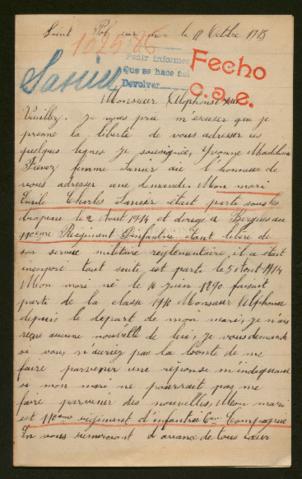 Saint Pol sur mer le 11 Octobre 1915
Fecho
C.a.e.
Pedir informes
Que se hace fué
Devolver
Monsieur Alphonse XIII
Veuillez Je vous prie m'excuser que je
prenne la liberté de vous adresser ces
quelques lignes Je soussignée, Yvonne Madeleine
femme Sanier ai l'honneur de
vous adresser une demande. Mon mari
Emile Charles Sanier était parti sous les
drapeaux le 2 Août 1914 et dirigé à Bergues au
110eme Régiment d'infanterie étant libéré de
son service militaire réglementaire, il a était
incorporé tout suite est parti le 5 Août 1914
Mon mari né le 16 Juin 1890 faisait
partie de la classe 1910 Monsieur Alphonse
depuis le départ de mon mari, je n'ai
reçue aucune nouvelle de lui, je vous demande
si vous n'auriez pas la bonté de me
faire parvenir une réponse m'indiquant
si mon mari ne pourrait pas me
faire parvenir des nouvelles, Mon mari
est 110eme régiment d'infanterie Compagnie
En vous remerciant d'avance de tous cœur